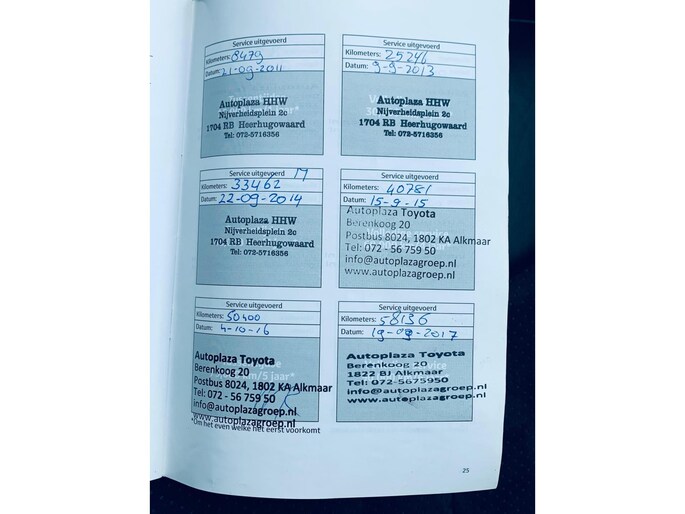 Service uitgevoerd
Kilometers: 8479
Datum: 21-09-2011
Autoplaza HHW
Nijverheidsplein 2c
1704 RB Heerhugowaard
Tel: 072-5716356
Service uitgevoerd
Kilometers: 25246
Datum: 9-9-2013
Autoplaza HHW
Nijverheidsplein 2c
1704 RB Heerhugowaard
Tel: 072-5716356
Service uitgevoerd
Kilometers: 33462
Datum: 22-09-2014
Autoplaza HHW
Nijverheidsplein 2c
1704 RB Heerhugowaard
Tel: 072-5716356
Service uitgevoerd
Kilometers: 40781
Datum: 15-9-15
Autoplaza Toyota
Berenkoog 20
Postbus 8024, 1802 KA Alkmaar
Tel: 072 - 56 759 50
info@autoplazagroep.nl
www.autoplazagroep.nl
Service uitgevoerd
Kilometers: 50400
Datum: 4-10-16
Autoplaza Toyota
Berenkoog 20
Postbus 8024, 1802 KA Alkmaar
Tel: 072 - 56 759 50
info@autoplazagroep.nl
www.autoplazagroep.nl
*Om het even welke het eerst voorkomt
Service uitgevoerd
Kilometers: 58136
Datum: 19-09-2017
Autoplaza Toyota
Berenkoog 20
1822 BJ Alkmaar
Tel: 072-5675950
info@autoplazagroep.nl
www.autoplazagroep.nl
25